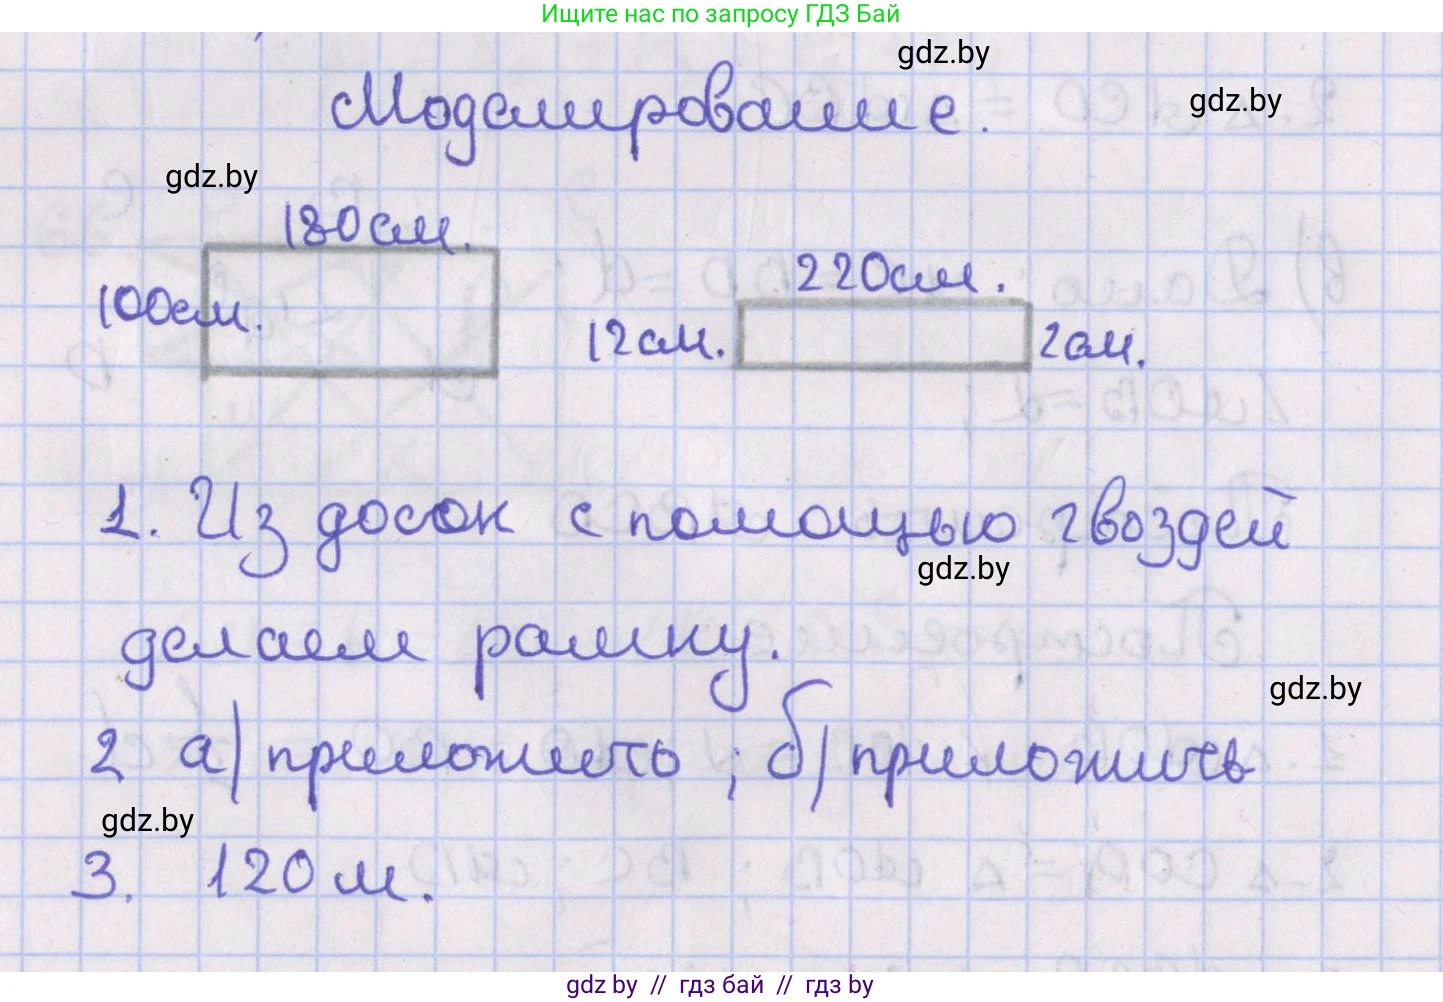 Ищите нас по запросу ГДЗ Бай
gdz.by
Моделирование.
gdz.by
gdz.by
180см.
100см.
220см.
12см.
2см.
1. Из досок с помощью гвоздей
gdz.by
делаем рамку.
gdz.by
2 а) приложить ; б) приложить
gdz.by
3. 120 м.
gdz.by // гдз бай // гдз by